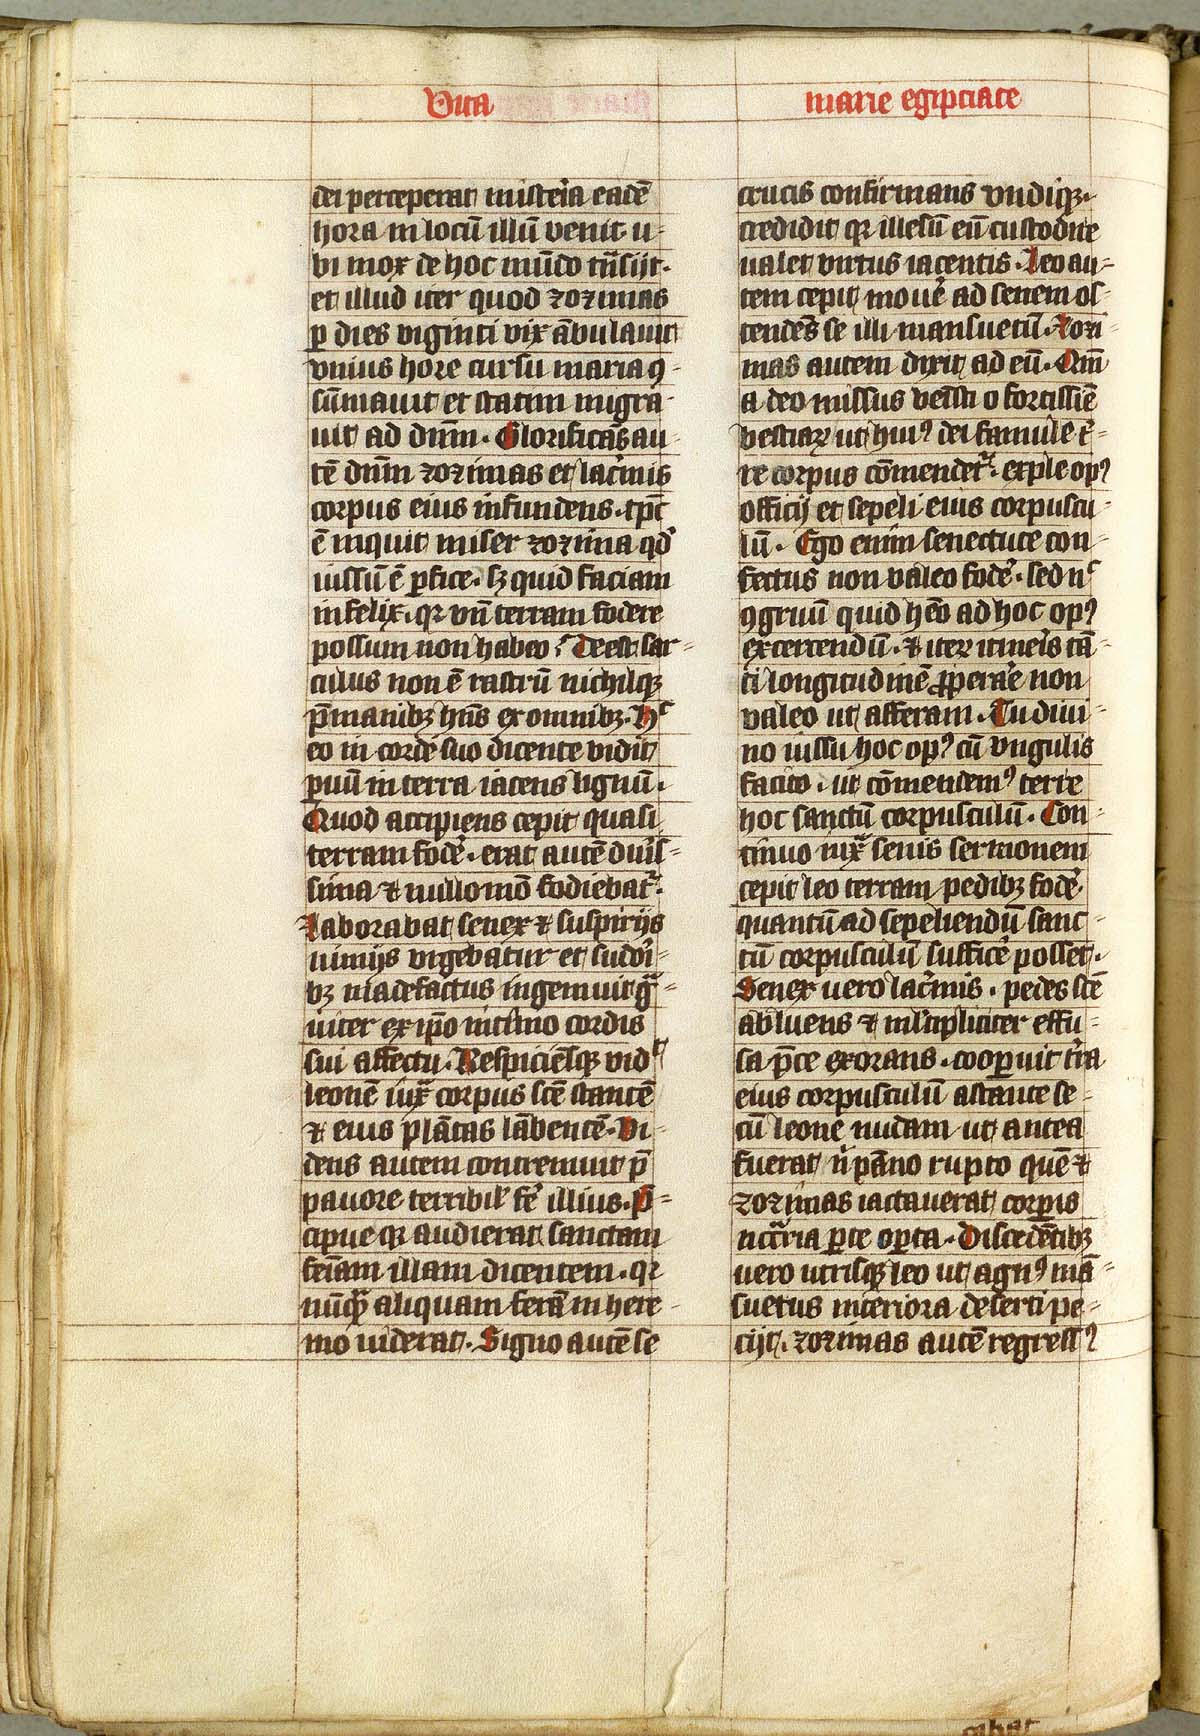 Vita
marie egipciace
dei perceperat misteria eadē
hora in locū illū venit· u-
bi mox de hoc mūdo trāsijt·
et illud iter quod zozimas
ꝑ dies viginti vix ābulauit
vnius hore cursu maria ꝯ-
sūmauit et statim migra-
uit ad dnm̄· Glorificās au-
tē dnm̄ zozimas et lac̓mis
corpus eius infundens· tp̄c
ē inquit miser zozima qd̓
iussū ē ꝑfice· sꝫ quid faciam
infelix· qꝛ vn̄ terram fodere
possum non habeo? Deest sar-
culus non ē rastrū nichilqꝫ
p̄ manibꝫ hn̄s ex omnibꝫ· Hᶜ
eo in corde suo dicente vidit
ꝑuū in terra iacens lignū·
Quod accipiens cepit quasi
terram fod̓e· erat autē duris-
sima ⁊ nullo mō fodiebat᷑·
Laborabat senex ⁊ suspirijs
nimijs vrgebatur et sudori-
bꝫ madefactus ingemuit gͣ-
uiter ex ip̄o intimo cordis
sui affectu· Respiciēsqꝫ vidᵗ
leonē iuxͣ corpus scē stantē
⁊ eius plātas lābentē· Vi-
dens autem contremuit p̄
pauore terribil̓ fer̓ illius· P̄-
cipue qꝫ audierat sanctam
femiam illam dicentem· qꝛ
nūqͣ aliquam ferā in here-
mo viderat· Signo autē se
crucis confirmans vndiqꝫ·
credidit qꝛ illesū eū custodire
ualet virtus iacentis· Leo au-
tem cepit mouer̓ ad senem os-
tendēs se illi mansuetū· Zozi-
mas autem dixit ad eū· Qm̄
a deo missus venisti o fortissīe
bestiaꝝ ut huiꝰ dei famule t̓-
re corpus cōmendet᷑· exple opꝰ
officij et sepeli eius corpuscu-
lū· Ego enim senectute con-
fectus non valeo foder̓· sed nᶜ
ꝯgruū quid hēo ad hoc opꝰ
excercendū· ⁊ iterꝫ itineris tā-
ti longitudinē ꝓperare non
valeo ut afferam· Tu diui-
no iussu hoc opꝰ cū vngulis
facito· ut cōmendemꝰ terre
hoc sanctū corpusculū· Con-
tinuo iuxͣ senis sermonem
cepit leo terram pedibꝫ foder̓
quantū ad sepeliendū sanc-
tū corpusculū sufficer̓ posset·
Senex vero lac̓mis· pedes scē
abluens ⁊ ml̓tipliciter effu-
sa p̄ce exorans· cooꝑuit t̓ra
eius corpusculū astante se-
cū leone nudam ut antea
fuerat n̓ pāno rupto quē ei
zozimas iactauerat corpis
nccͣria ꝑte oꝑta· Discedētibꝫ
vero utrisqꝫ leo ut agnꝰ mā-
suetus interiora deserti pe-
cijt· zozimas autē regressꝰ